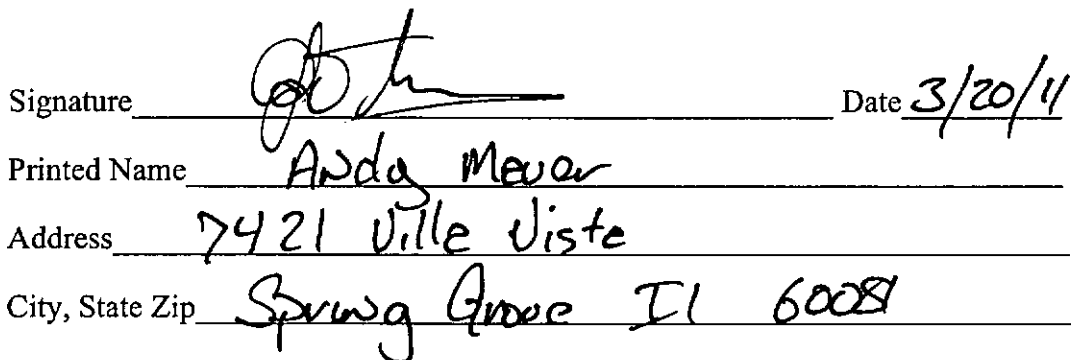 Signature Date 3/20/11
Printed Name Andy Meyer
Address 7421 Ville Viste
City, State Zip Spring Grove Il 60081